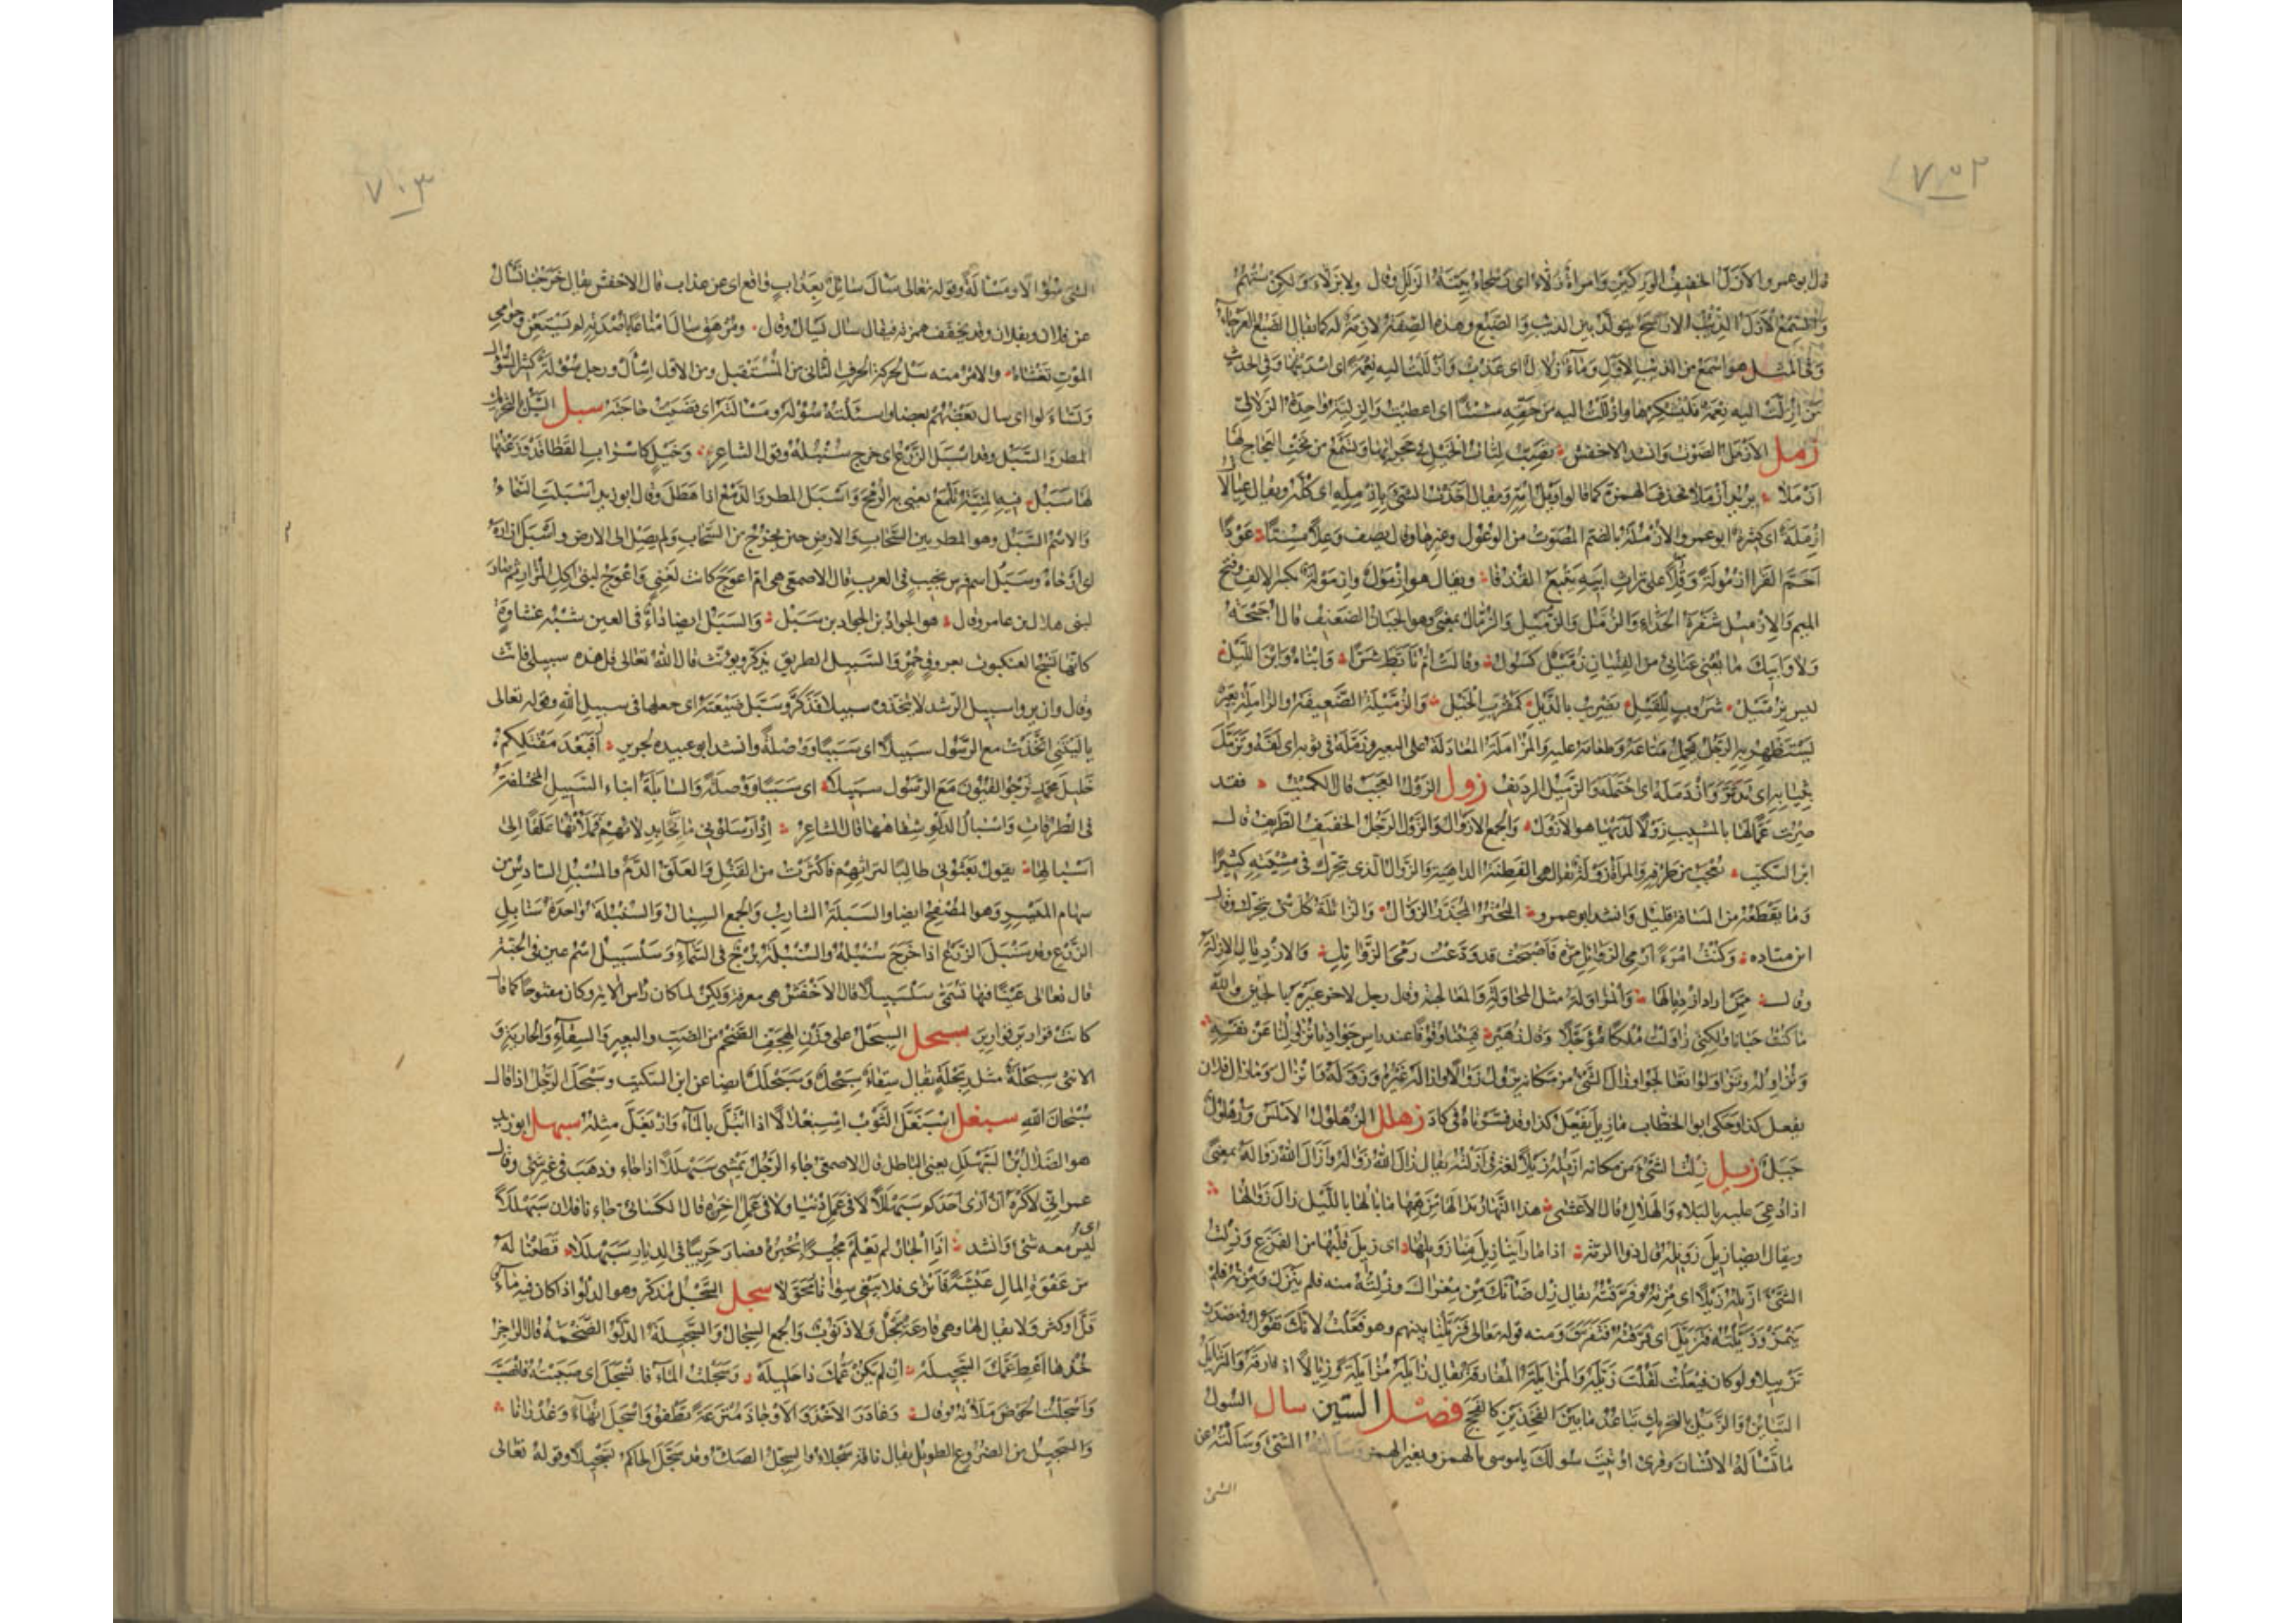 ٧٠٢
قال ابو عمرو الازل الخفيف الوركين وامرأة زلاء اى رسحاء بينة الزلل وقال ولا بزلاء ولكن ستهم
والسمع الازل الذئب الارسح يتولد بين الذئب والضبع وهذه الصفة لازمة له كما يقال الضبع العرجاء
وفى المثل هو اسمع من الذئب الازل وماء زلال اى عذب وازللت اليه نعمة اى اسديتها وفى الحديث
من ازلت اليه نعمة فليشكرها وازللت اليه من حقه شيئا اى اعطيت والزلية واحدة الزلالى
زمل الازمل الصوت وانشد الاخفش تضب لثات الخيل فى حجراتها وتسمع من تحت العجاج لها
ازملا يريد ازملا فحذف الهمزة كما قالوا ويلمه ويقال اخذت الشئ بازمله اى كله ويقال عيالا
ازملة اى كثيرة ابو عمرو الازمولة بالضم المصوت من الوعول وغيرها وقال يصف وعلا مسنا عودا
احم القرا ازمولة وقلا على تراث ابيه يتبع القذفا ويقال هو ازمول وازمولة بكسر الالف وفتح
الميم والازميل شفرة الحذاء والزمل والزميل والزمال بمعنى وهو الجبان الضعيف قال احيحة
ولا وابيك ما يغنى غنائى من الفتيان زميل كسول وقالت ام تأبط شرا وابناه وابن الليل
ليس بزميل شروب للقيل يضرب بالذيل كمقرب الخيل والزميلة الضعيفة والزاملة بعير
يستظهر به الرجل يحمل متاعه وطعامه عليه والمزاملة المعادلة على البعير وزمله فى ثوبه اى لفه وتزمل
بثيابه اى تدثر وازدمله اى احتمله والزميل الرديف زول الزول العجب قال الكميت فقد
صرت عما لها بالمشيب زولا لديها هو الازول والجمع الازوال والزول الرجل الخفيف الظريف قال
ابن السكيت يعجب من ظرفه والمرأة زولة يقال هى الفطنة الداهية والزوال الذى يتحرك فى مشيته كثيرا
وما يقطعه من المسافة قليل وانشد ابو عمرو البحتر المجذر الزوال والزائلة كل شئ يتحرك وقال
ابن مياده وكنت امرءا ارمى الزوائل مرة فاصبحت قد ودعت رمى الزوائل
ما كنت جبانا ولكنى زاولت ملكا مؤجلا وقال زهير فبتنا وقوفا عند راس جوادنا يزاولنا عن نفسه
وتزاوله وتزاولوا تعالجوا وزال الشئ من مكانه يزول زوالا وازاله غيره وزوله فانزال وما زال فلان
يفعل كذا وحكى ابو الخطاب ما زيل يفعل كذا وقد فسرناه فى كاد زهلل الزهلول الاملس وزهلول
جبل زيل زلت الشئ من مكانه ازيله زيلا لغة فى ازلته يقال زال الله زواله وازال الله زواله بمعنى
اذا دعى عليه بالبلاء والهلاك قال الاعشى هذا النهار بدا لها من همها ما بالها بالليل زال زوالها
ويقال ايضا زيل زويله قال ذو الرمة اذا ما راتنا زيل منا زويلها اى زيل قلبها من الفزع وزلت
الشئ ازيله زيلا اى مزته وفرقته يقال زل ضأنك من معزاك وزلته منه فلم ينزل ومزته فلم
ينمز وزيلته فتزيل اى فرقته فتفرق ومنه قوله تعالى فزيلنا بينهم وهو فعلت لانك تقول فى مصدره
تزييلا ولو كان فيعلت لقلت زيلة والمزايلة المفارقة يقال زايله مزايلة وزيالا اذا فارقه والتزايل
التباين والزيل بالتحريك تباعد ما بين الفخذين كالفحج فصل السين سال السول
ما تسأله الانسان وقرئ اوتيت سؤلك يا موسى بالهمز وبغير الهمز وسألته الشئ وسألته عن
الشئ
٧٠٣
الشئ سؤالا ومسألة وقوله تعالى سأل سائل بعذاب واقع اى عن عذاب قال الاخفش يقال خرجنا نسأل
عن فلان وبفلان وقد يخفف همزه فيقال سال يسال وقال ومرهق سال امتاعا باصدته لم يستعن وحوامى
الموت تغشاه والامر منه سل بحركة الحرف الثانى من المستقبل ومن الاول اسأل ورجل سؤلة كثير السؤال
وتساءلوا اى سال بعضهم بعضا واسألته سؤله ومسألته اى قضيت حاجته سبل السبل بالتحريك
المطر والسبل وقد اسبل الزرع اى خرج سنبله وقول الشاعر وخيل كاسراب القطا قد وزعتها
لها سبل فيه المنية تلمع يعنى به الرمح واسبل المطر والدمع اذا هطل وقال ابو زيد اسبلت السماء
والاسم السبل وهو المطر بين السحاب والارض حين يخرج من السحاب ولم يصل الى الارض واسبل ازاره
اى ارخاه وسبل اسم فرس نجيب فى العرب قال الاصمعى هى ام اعوج كانت لغنى واعوج لبنى اكل المرار ثم صار
لبنى هلال بن عامر وقال هو الجواد بن الجواد بن سبل والسبل ايضا داء فى العين شبه غشاوة
كانها نسج العنكبوت بعروق حمر والسبيل الطريق يذكر ويؤنث قال الله تعالى قل هذه سبيلى فانث
وقال وان يروا سبيل الرشد لا يتخذوه سبيلا فذكر وسبل ضيعته اى جعلها فى سبيل الله وقوله تعالى
يا ليتنى اتخذت مع الرسول سبيلا اى سببا ووصلة وانشد ابو عبيده لجرير افبعد مقتلكم
خليل محمد ترجو القيون مع الرسول سبيلا اى سببا ووصلة والسابلة ابناء السبيل المختلفة
فى الطرقات واسبال الدلو شفاهها قال الشاعر اذ ارسلونى ماتحا بدلائهم فملأتها علقا الى
اسبالها يقول بعثونى طالبا لتراتهم فاكثرت من القتل والعلق الدم والمسبل السادس من
سهام الميسر وهو المصفح ايضا والسبلة الشارب والجمع السبال والسنبلة واحدة سنابل
الزرع وقد سنبل الزرع اذا خرج سنبله والسنبلة برج فى السماء وسلسبيل اسم عين فى الجنة
قال تعالى عينا فيها تسمى سلسبيلا قال الاخفش هى معرفة ولكن لما كان راس الاية وكان مفتوحا كما قال
كانت قواريرا قوارير سبحل السبحل على وزن الهجف الضخم من الضب والبعير والسقاء والجارية و
الانثى سبحلة مثل ربحلة يقال سقاء سبحل وسبحلل ايضا عن ابن السكيت وسبحل الرجل اذا قال
سبحان الله سبغل اسبغل الثوب اسبغلالا اذا ابتل بالماء وازبغل مثله سبهل ابو زيد
هو الضلال بن السبهلل يعنى الباطل قال الاصمعى جاء الرجل يمشى سبهللا اذا جاء وذهب فى غير شئ وقال
عمر انى لاكره ان ارى احدكم سبهللا لا فى عمل دنيا ولا فى عمل اخرة قال الكسائى جاءنا فلان سبهللا
اى
ليس معه شئ وانشد اذا الجار لم يعلم مجيرا يجيره فصار حريبا فى الديار سبهللا قطعنا له
من عفوة المال عيشة فاثرى فلا يبغى سوانا محولا سجل السجل مذكر وهو الدلو اذا كان فيه ماء
قل او كثر ولا يقال لها وهى فارغة سجل ولا ذنوب والجمع السجال والسجيلة الدلو الضخمة قال الراجز
خذها واعط عمك السجيله ان لم يكن عمك ذا حليله وسجلت الماء فانسجل اى صببته فانصب
واسجلت الحوض ملأته وقال وغادر الاخذ والاوجاذ مترعة تطفو واسجل انهاء وغدرانا
والسجيل من الضروع الطويل يقال ناقة سجلاء والسجل الصك وقد سجل الحاكم تسجيلا وقوله تعالى